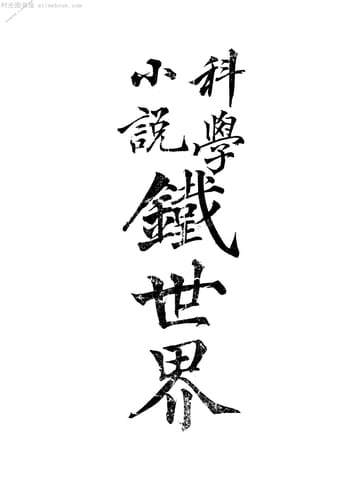 科學
小説
鐵世界
时光图书馆 mlimebook.com